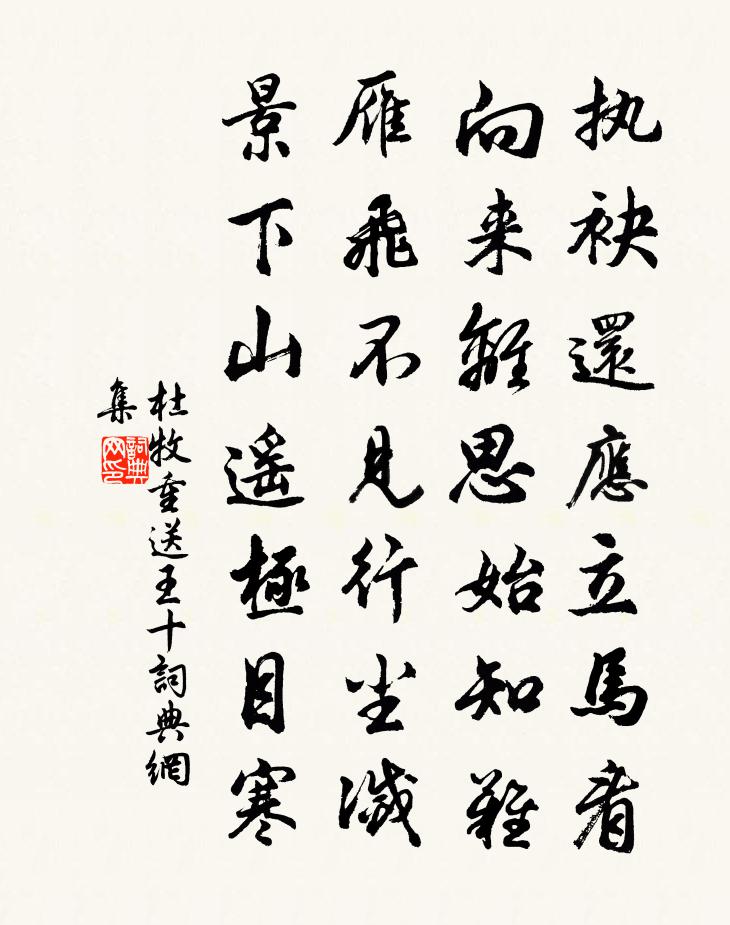 执袂還應立馬看
向来離思始知難
雁飛不見行尘滅
景下山遥極目寒
杜牧重送王十詞典網
集
詞典
网印